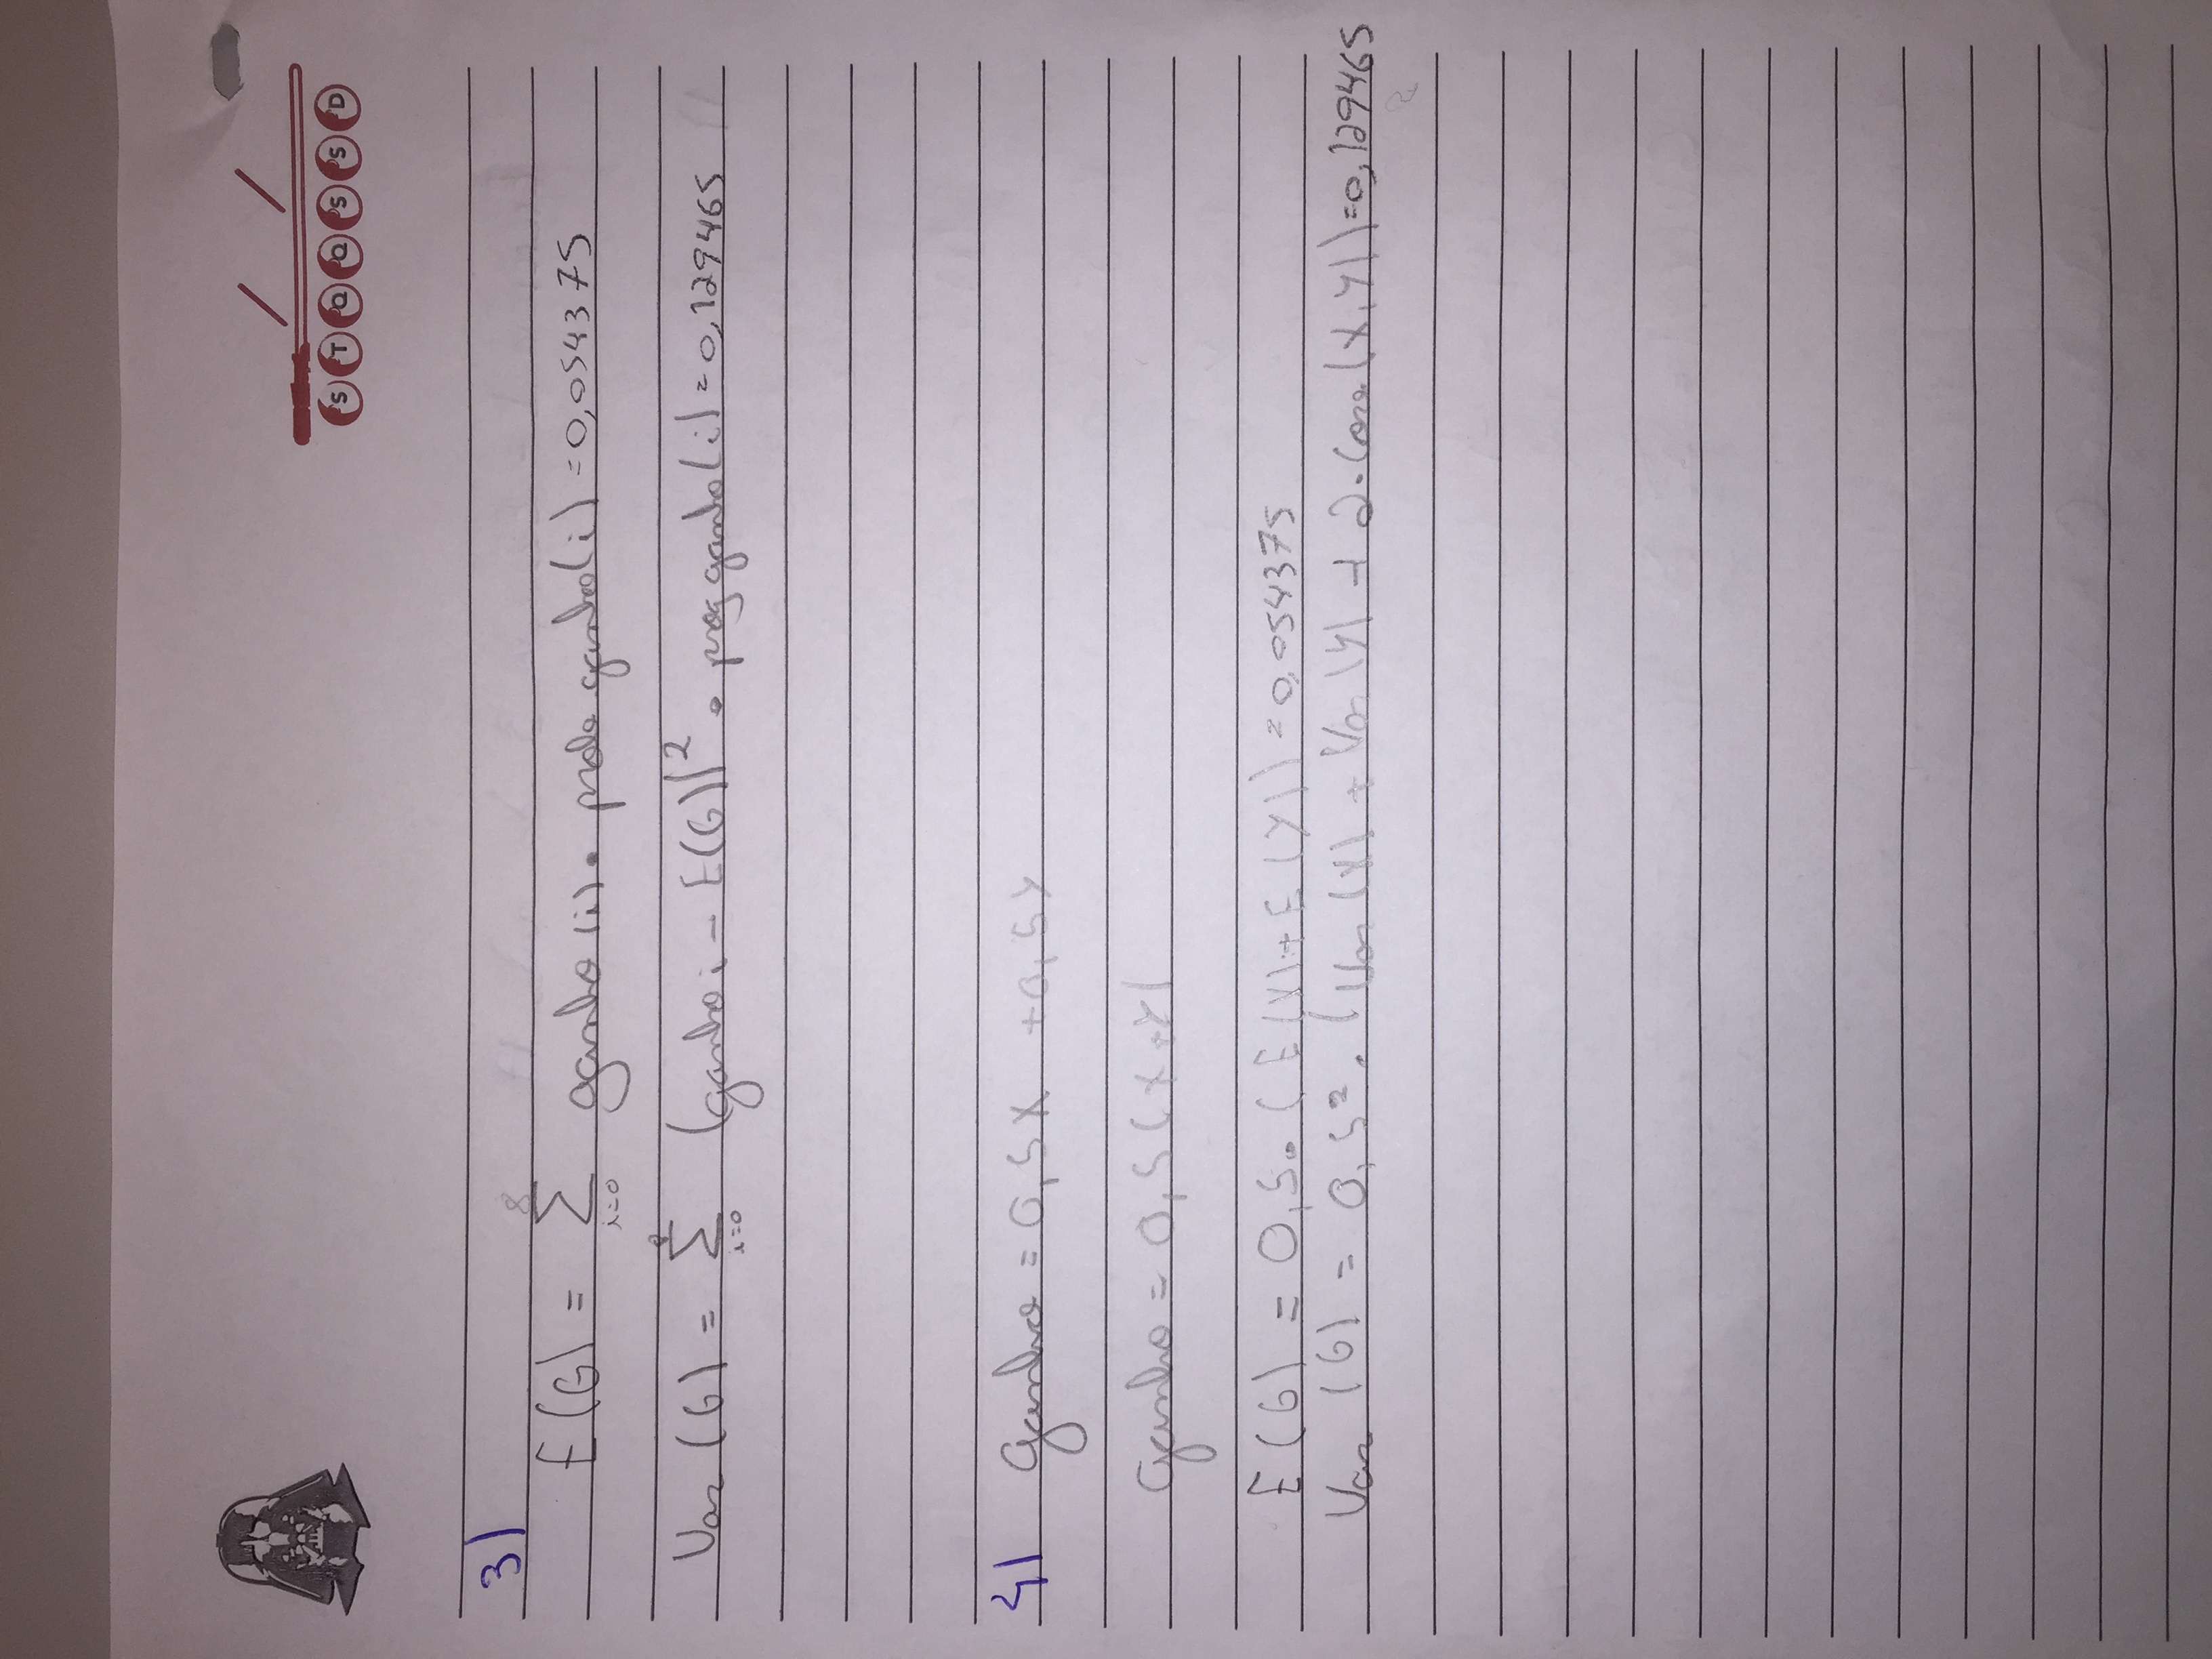 S T Q Q S S D
3)
E(G) = 8 Σ i=0 ganho(i) . prob ganho(i) = 0,054375
Var(G) = 8 Σ i=0 (ganho i - E(G))² . prog ganho(i) = 0,129465
4) Ganho = 0,5X + 0,5Y
Ganho = 0,5(X+Y)
E(G) = 0,5.(E(X)+E(Y)) = 0,054375
Var(G) = 0,5².(Var(X) + Var(Y) + 2.Cova(X,Y)) = 0,129465